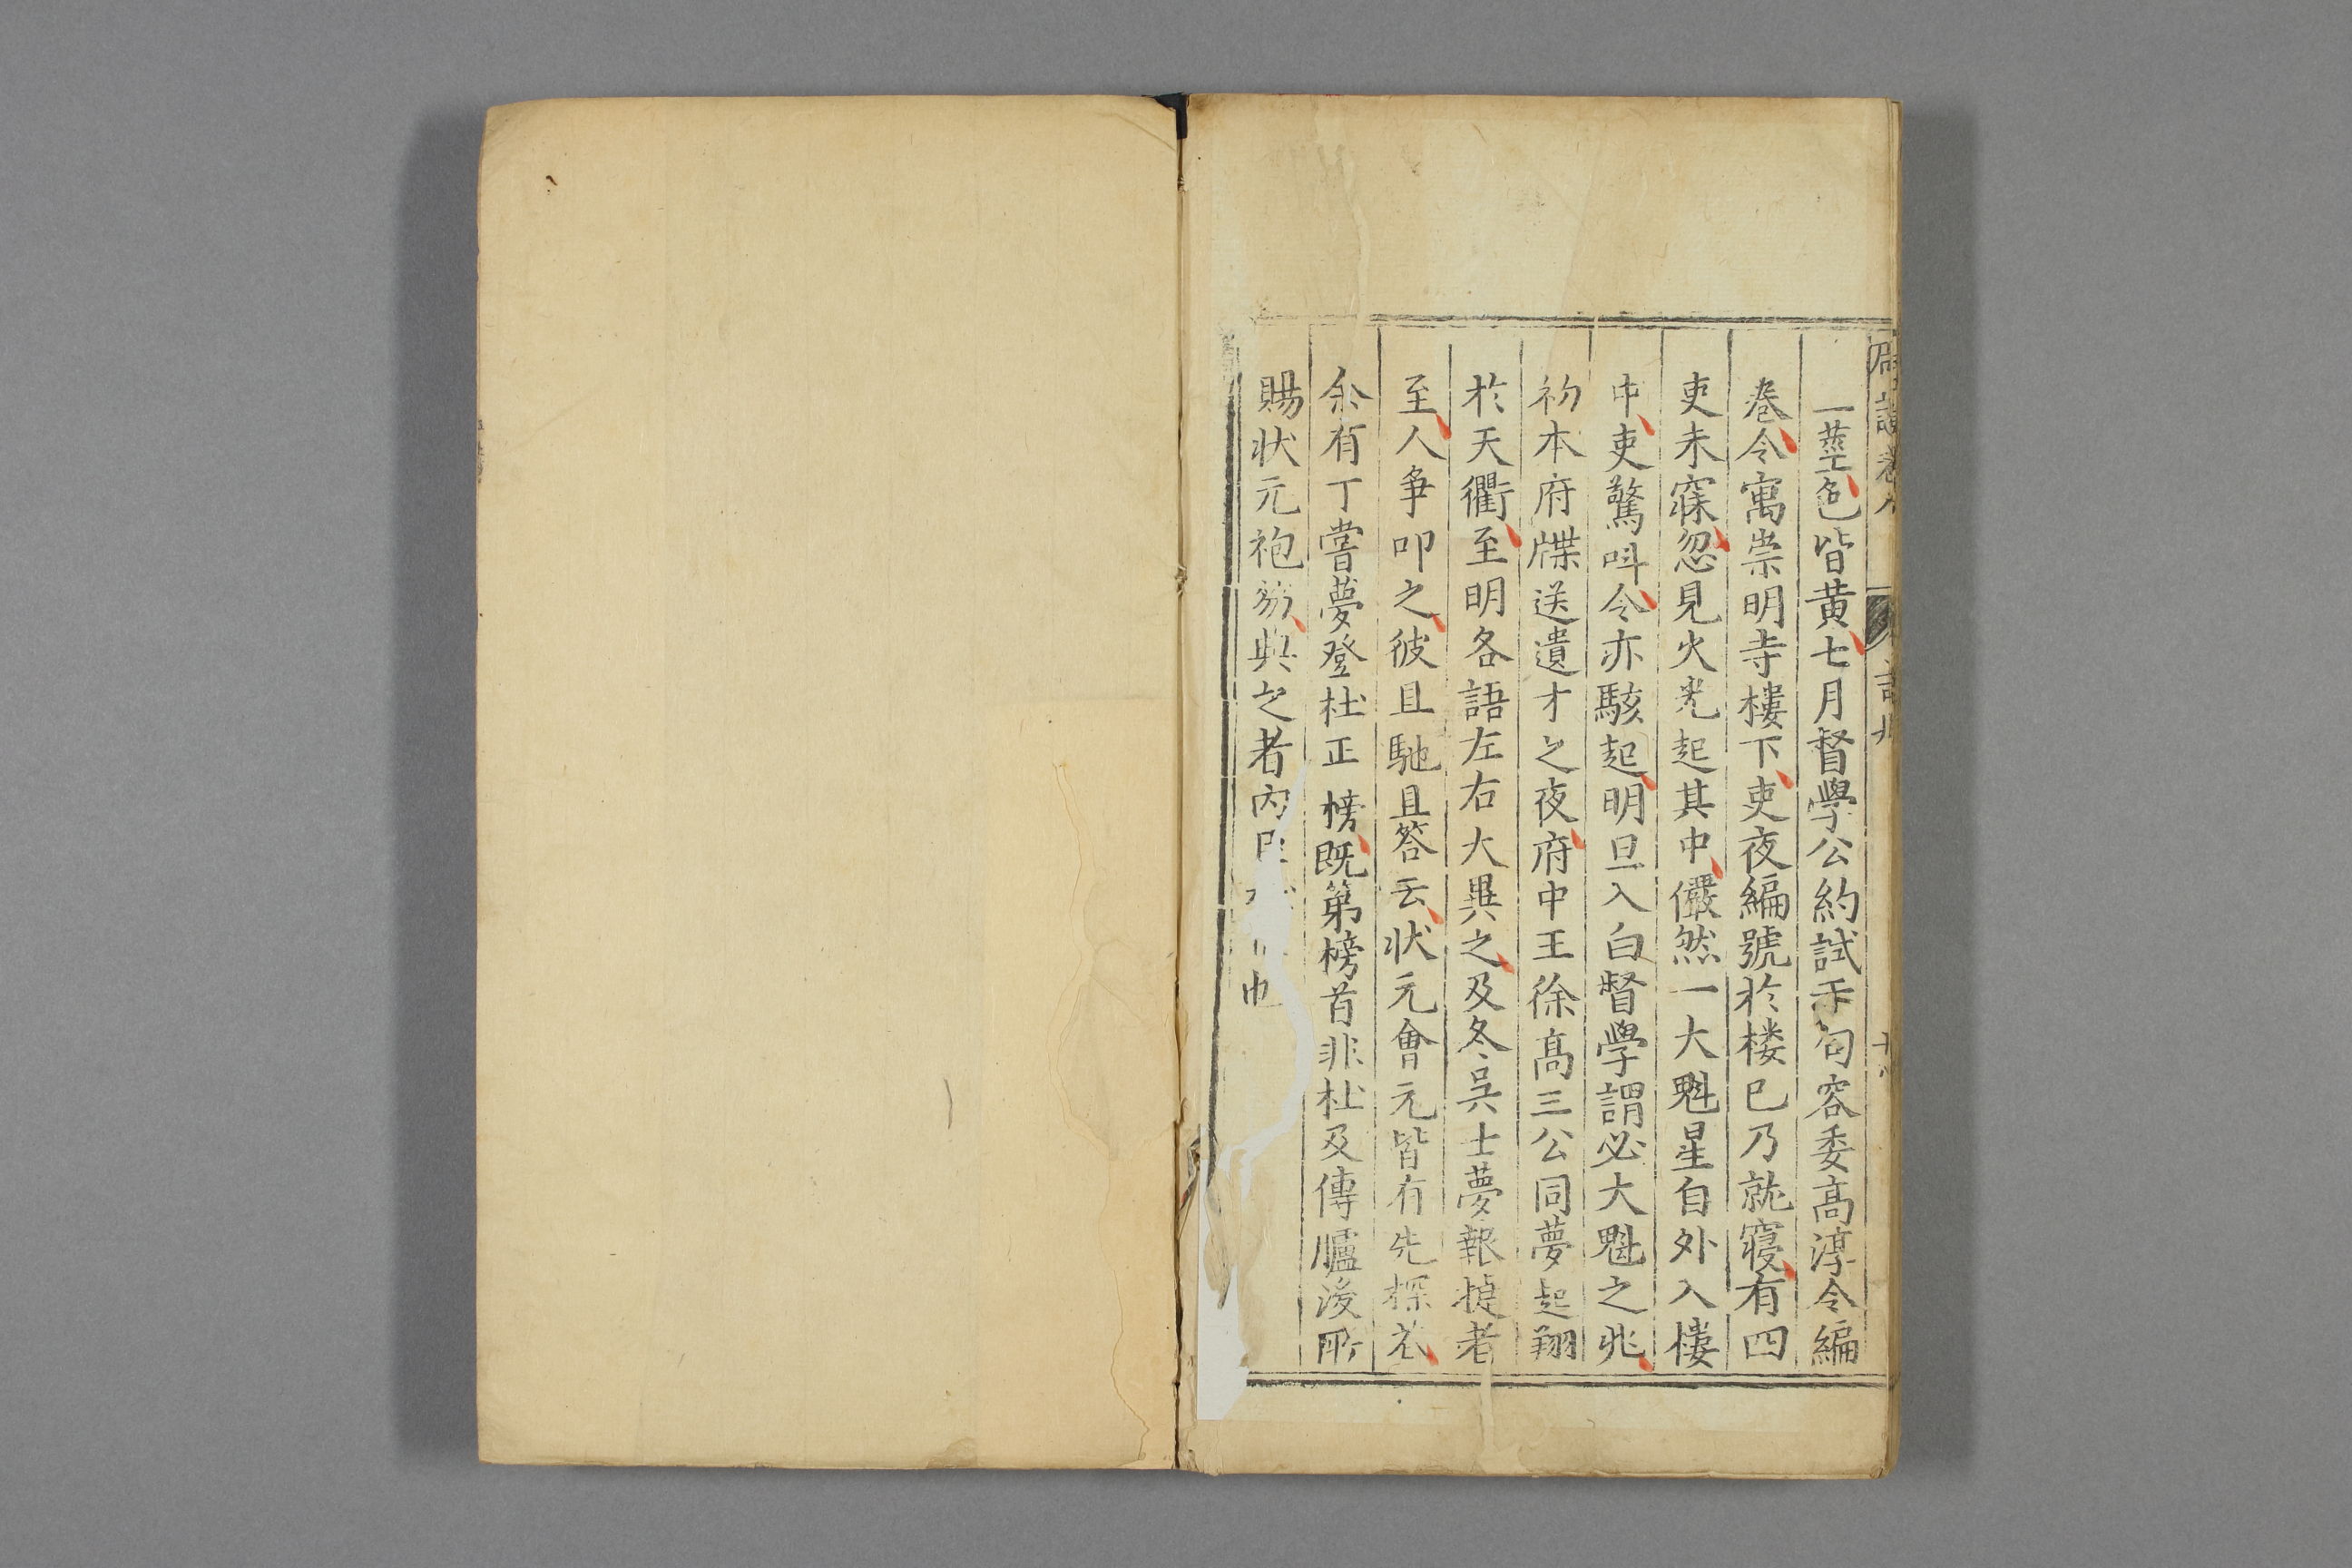 一莖色皆黄七月督學公約試于句容委髙淳令編
卷令寓崇明寺樓下吏夜編號於楼巳乃就寝有四
吏未寐忽見火光起其中儼然一大魁星自外入樓
中吏驚呌令亦駭起明旦入白督學謂必大魁之兆
初本府牒送遺才之夜府中王徐髙三公同夢起翔
於天衢至明各語左右大異之及冬吳士夢報捷者
至人争叩之彼且馳且答云状元會元皆有先探花
余有丁嘗夢登杜正榜既第榜首非杜及傳臚後所
賜状元袍笏與之者内臣杜 也